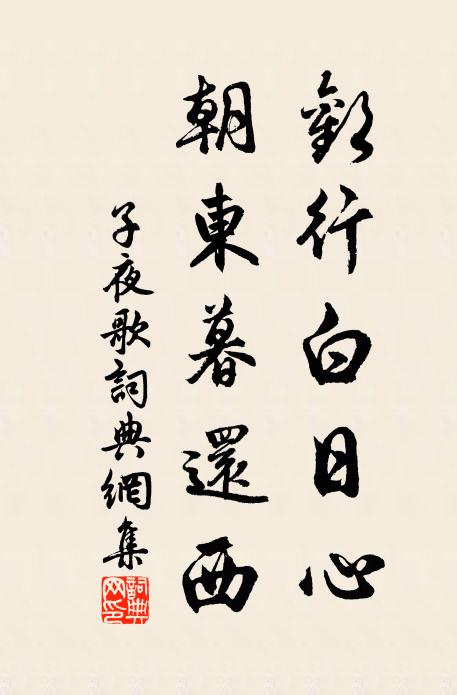 歡行白日心
朝東暮還西
子夜歌詞典網集
詞典网印